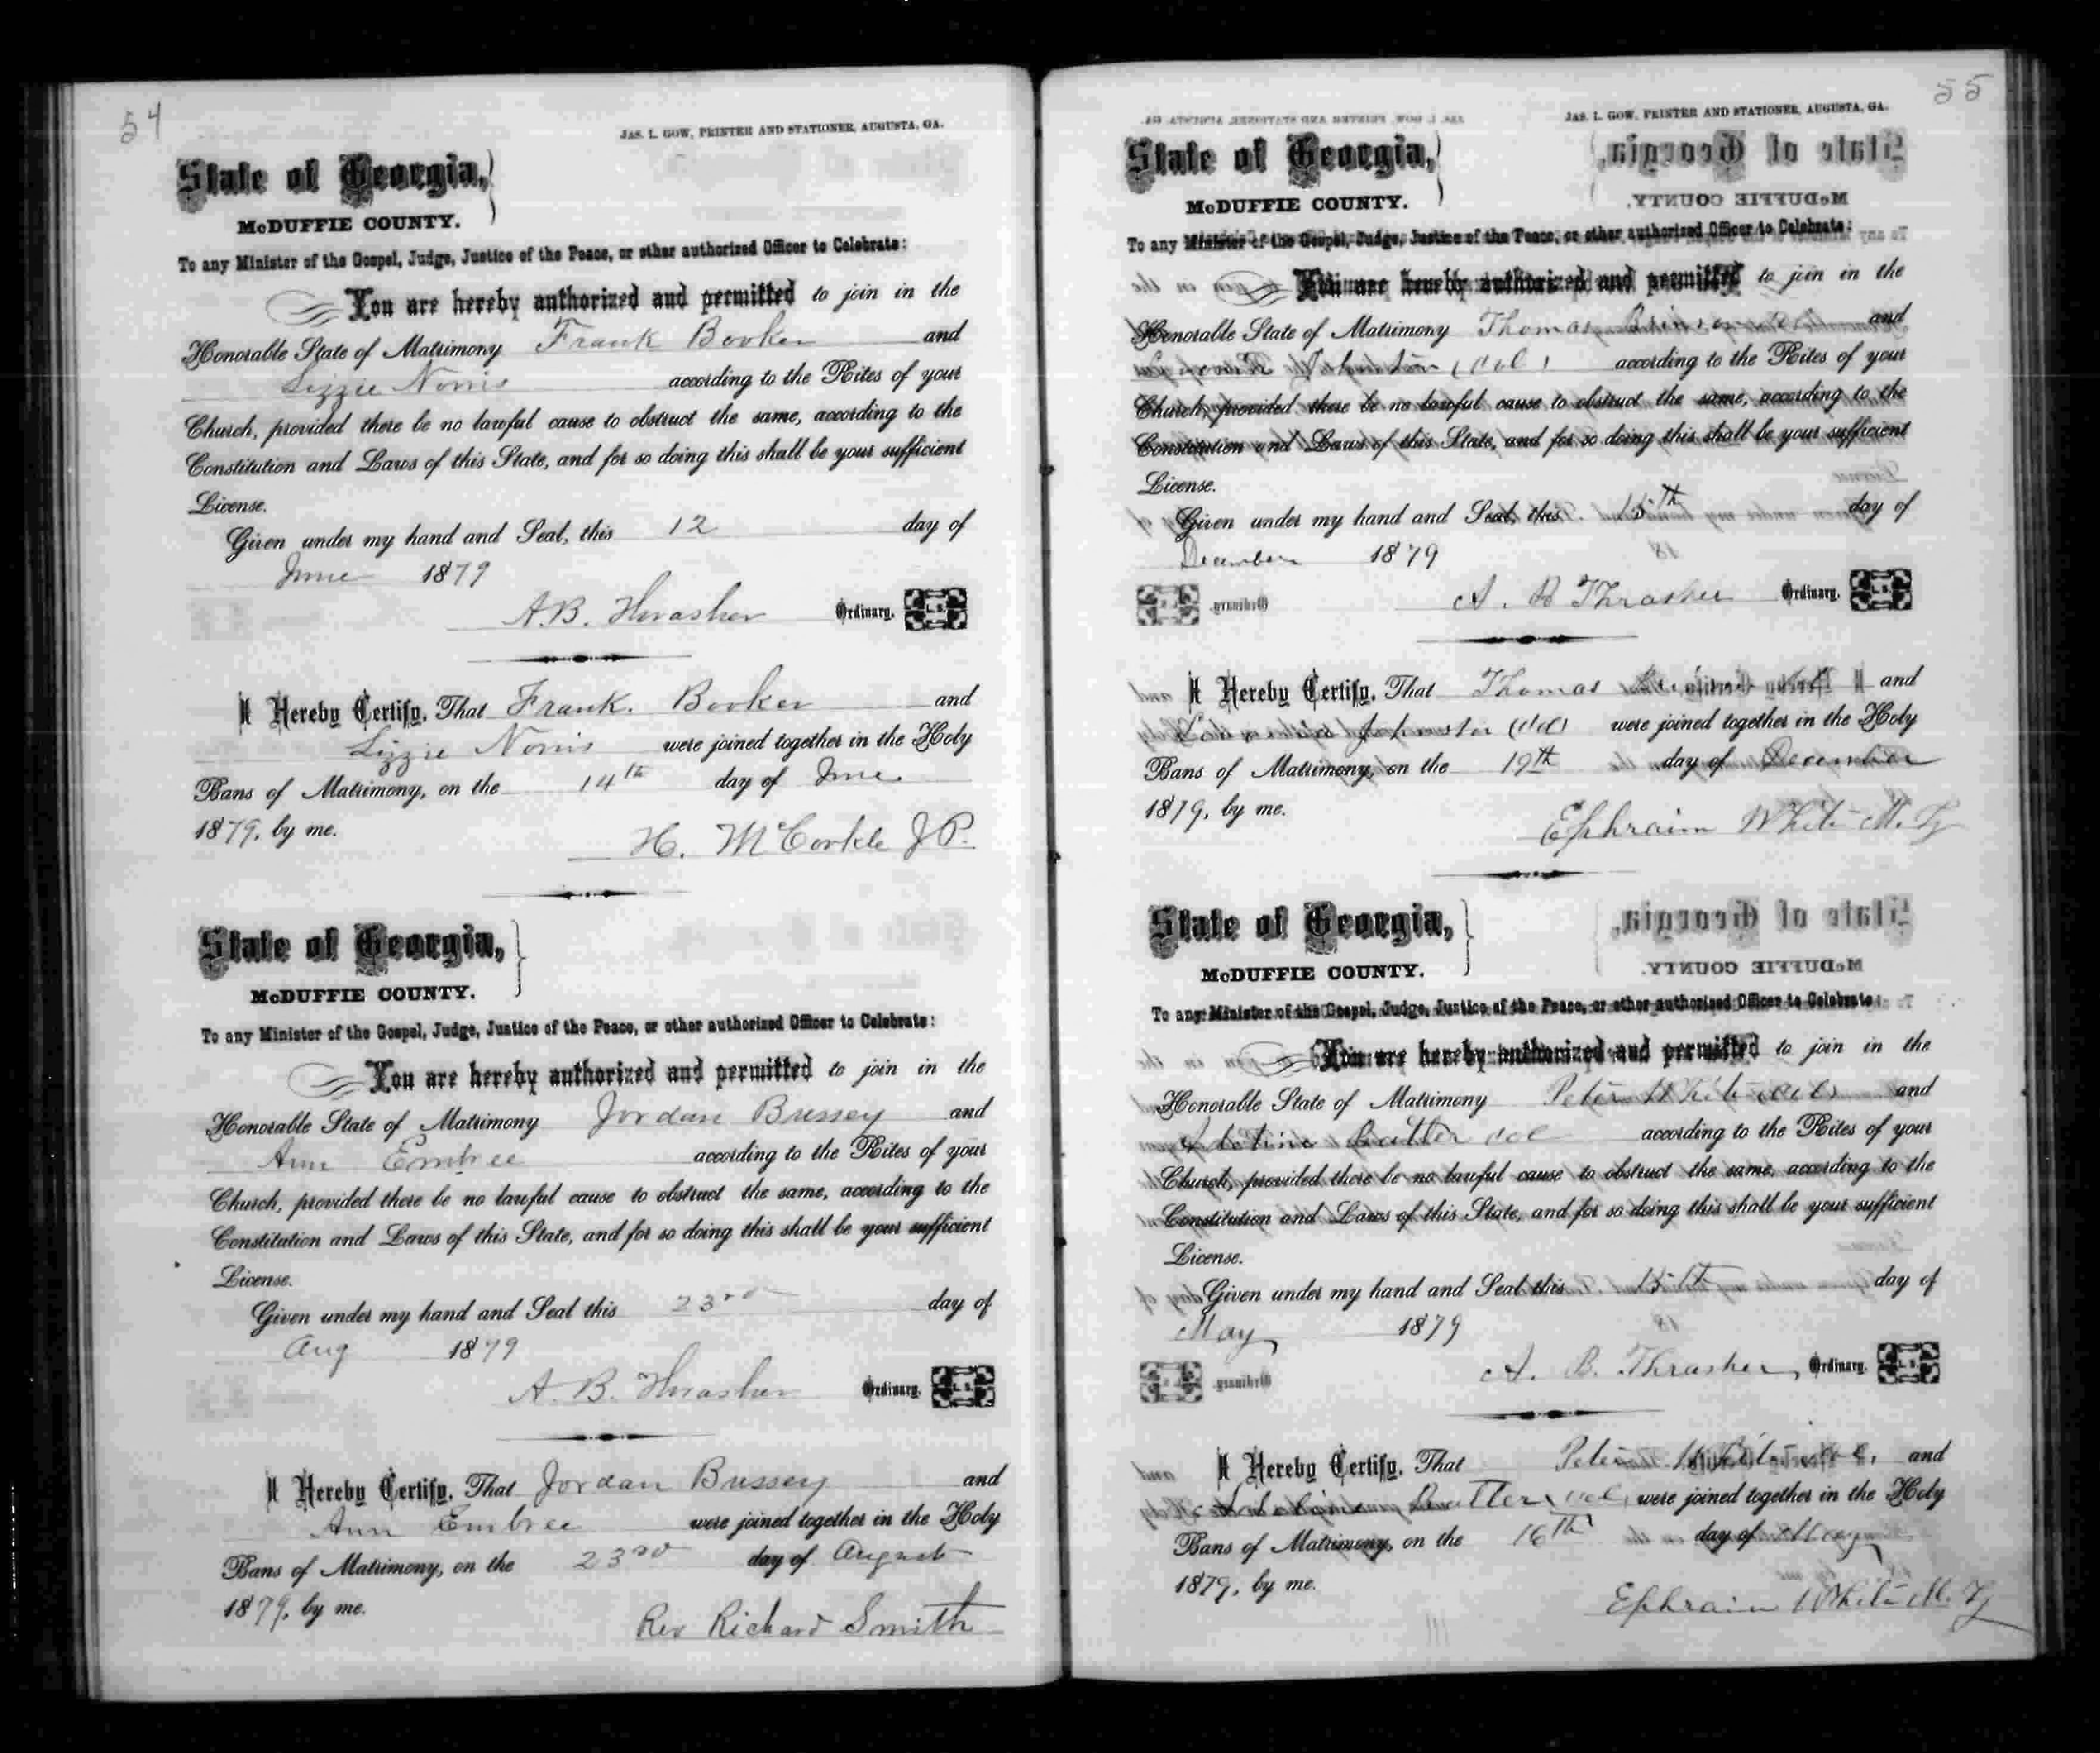 54
JAS. L. GOW, PRINTER AND STATIONER, AUGUSTA, GA.
State of Georgia,
McDUFFIE COUNTY.
To any Minister of the Gospel, Judge, Justice of the Peace, or other authorized Officer to Celebrate:
You are hereby authorized and permitted to join in the
Honorable State of Matrimony Frank Booker and
Lizzie Norris according to the Rites of your
Church, provided there be no lawful cause to obstruct the same, according to the
Constitution and Laws of this State, and for so doing this shall be your sufficient
License.
Given under my hand and Seal, this 12 day of
June 1879
A.B. Thrasher Ordinary. L.S.
I Hereby Certify, That Frank. Booker and
Lizzie Norris were joined together in the Holy
Bans of Matrimony, on the 14th day of June
1879, by me.
H. McCorkle J.P.
State of Georgia,
McDUFFIE COUNTY.
To any Minister of the Gospel, Judge, Justice of the Peace, or other authorized Officer to Celebrate:
You are hereby authorized and permitted to join in the
Honorable State of Matrimony Jordan Bussey and
Ann Embree according to the Rites of your
Church, provided there be no lawful cause to obstruct the same, according to the
Constitution and Laws of this State, and for so doing this shall be your sufficient
License.
Given under my hand and Seal this 23rd day of
Aug 1879
A. B. Thrasher Ordinary. L.S.
I Hereby Certify, That Jordan Bussey and
Ann Embree were joined together in the Holy
Bans of Matrimony, on the 23rd day of August
1879, by me.
Rev Richard Smith
55
JAS. L. GOW, PRINTER AND STATIONER, AUGUSTA, GA.
State of Georgia,
McDUFFIE COUNTY.
To any Minister of the Gospel, Judge, Justice of the Peace, or other authorized Officer to Celebrate:
You are hereby authorized and permitted to join in the
Honorable State of Matrimony Thomas and
Johnston (col) according to the Rites of your
Church, provided there be no lawful cause to obstruct the same, according to the
Constitution and Laws of this State, and for so doing this shall be your sufficient
License.
Given under my hand and Seal, this 15th day of
December 1879
A. B Thrasher Ordinary. L.S.
I Hereby Certify, That Thomas and
Johnston (col) were joined together in the Holy
Bans of Matrimony, on the 19th day of December
1879, by me.
Ephraim White M. G
State of Georgia,
McDUFFIE COUNTY.
To any Minister of the Gospel, Judge, Justice of the Peace, or other authorized Officer to Celebrate:
You are hereby authorized and permitted to join in the
Honorable State of Matrimony Peter White (col) and
Butler col according to the Rites of your
Church, provided there be no lawful cause to obstruct the same, according to the
Constitution and Laws of this State, and for so doing this shall be your sufficient
License.
Given under my hand and Seal this 15th day of
May 1879
A. B. Thrasher, Ordinary. L.S.
I Hereby Certify, That Peter White col, and
Butler col, were joined together in the Holy
Bans of Matrimony, on the 16th day of May
1879, by me.
Ephraim White M. G